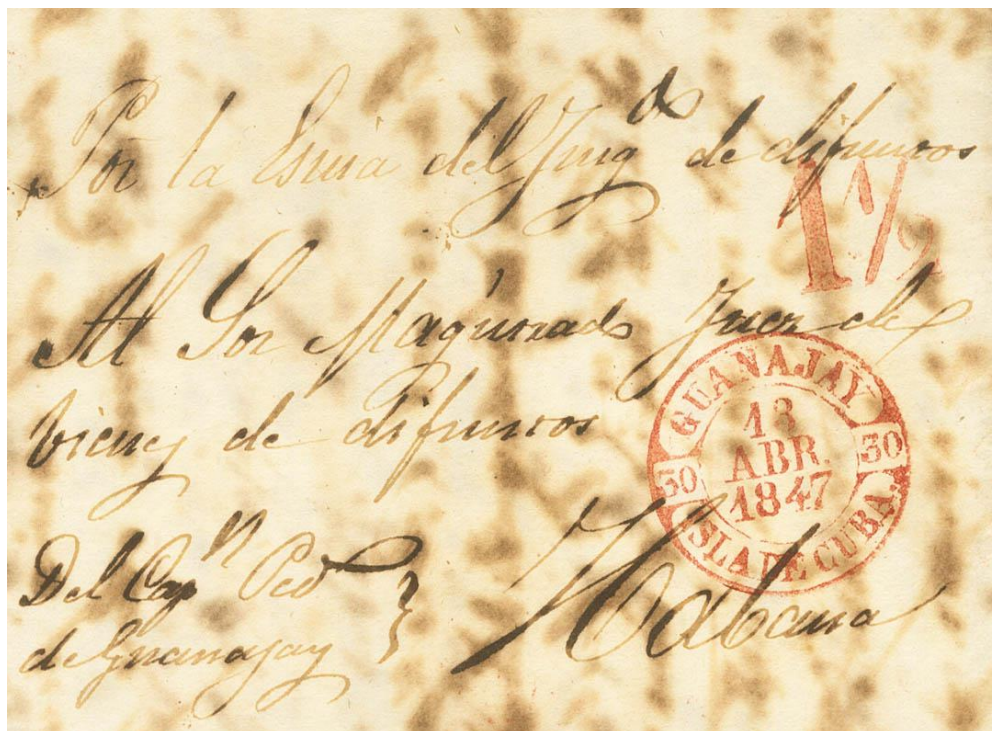 Por la Esnia del Juzg.do de difuntos
1 1/2
Al Sor Magistrado Juez de
bienes de difuntos
GUANAJAY
30 18 ABR. 1847 30
ISLA DE CUBA.
Del Capn Ped
de Guanajay
Habana